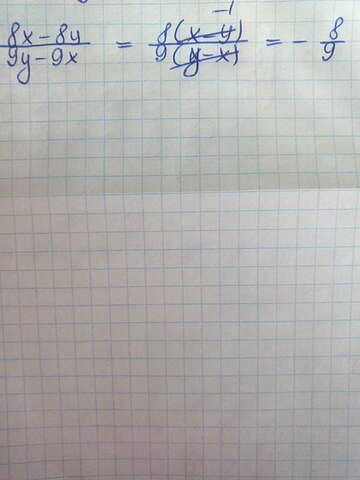 (8x - 8y)/(9y - 9x) = 8(x - y)/9(y - x) -1 = - 8/9